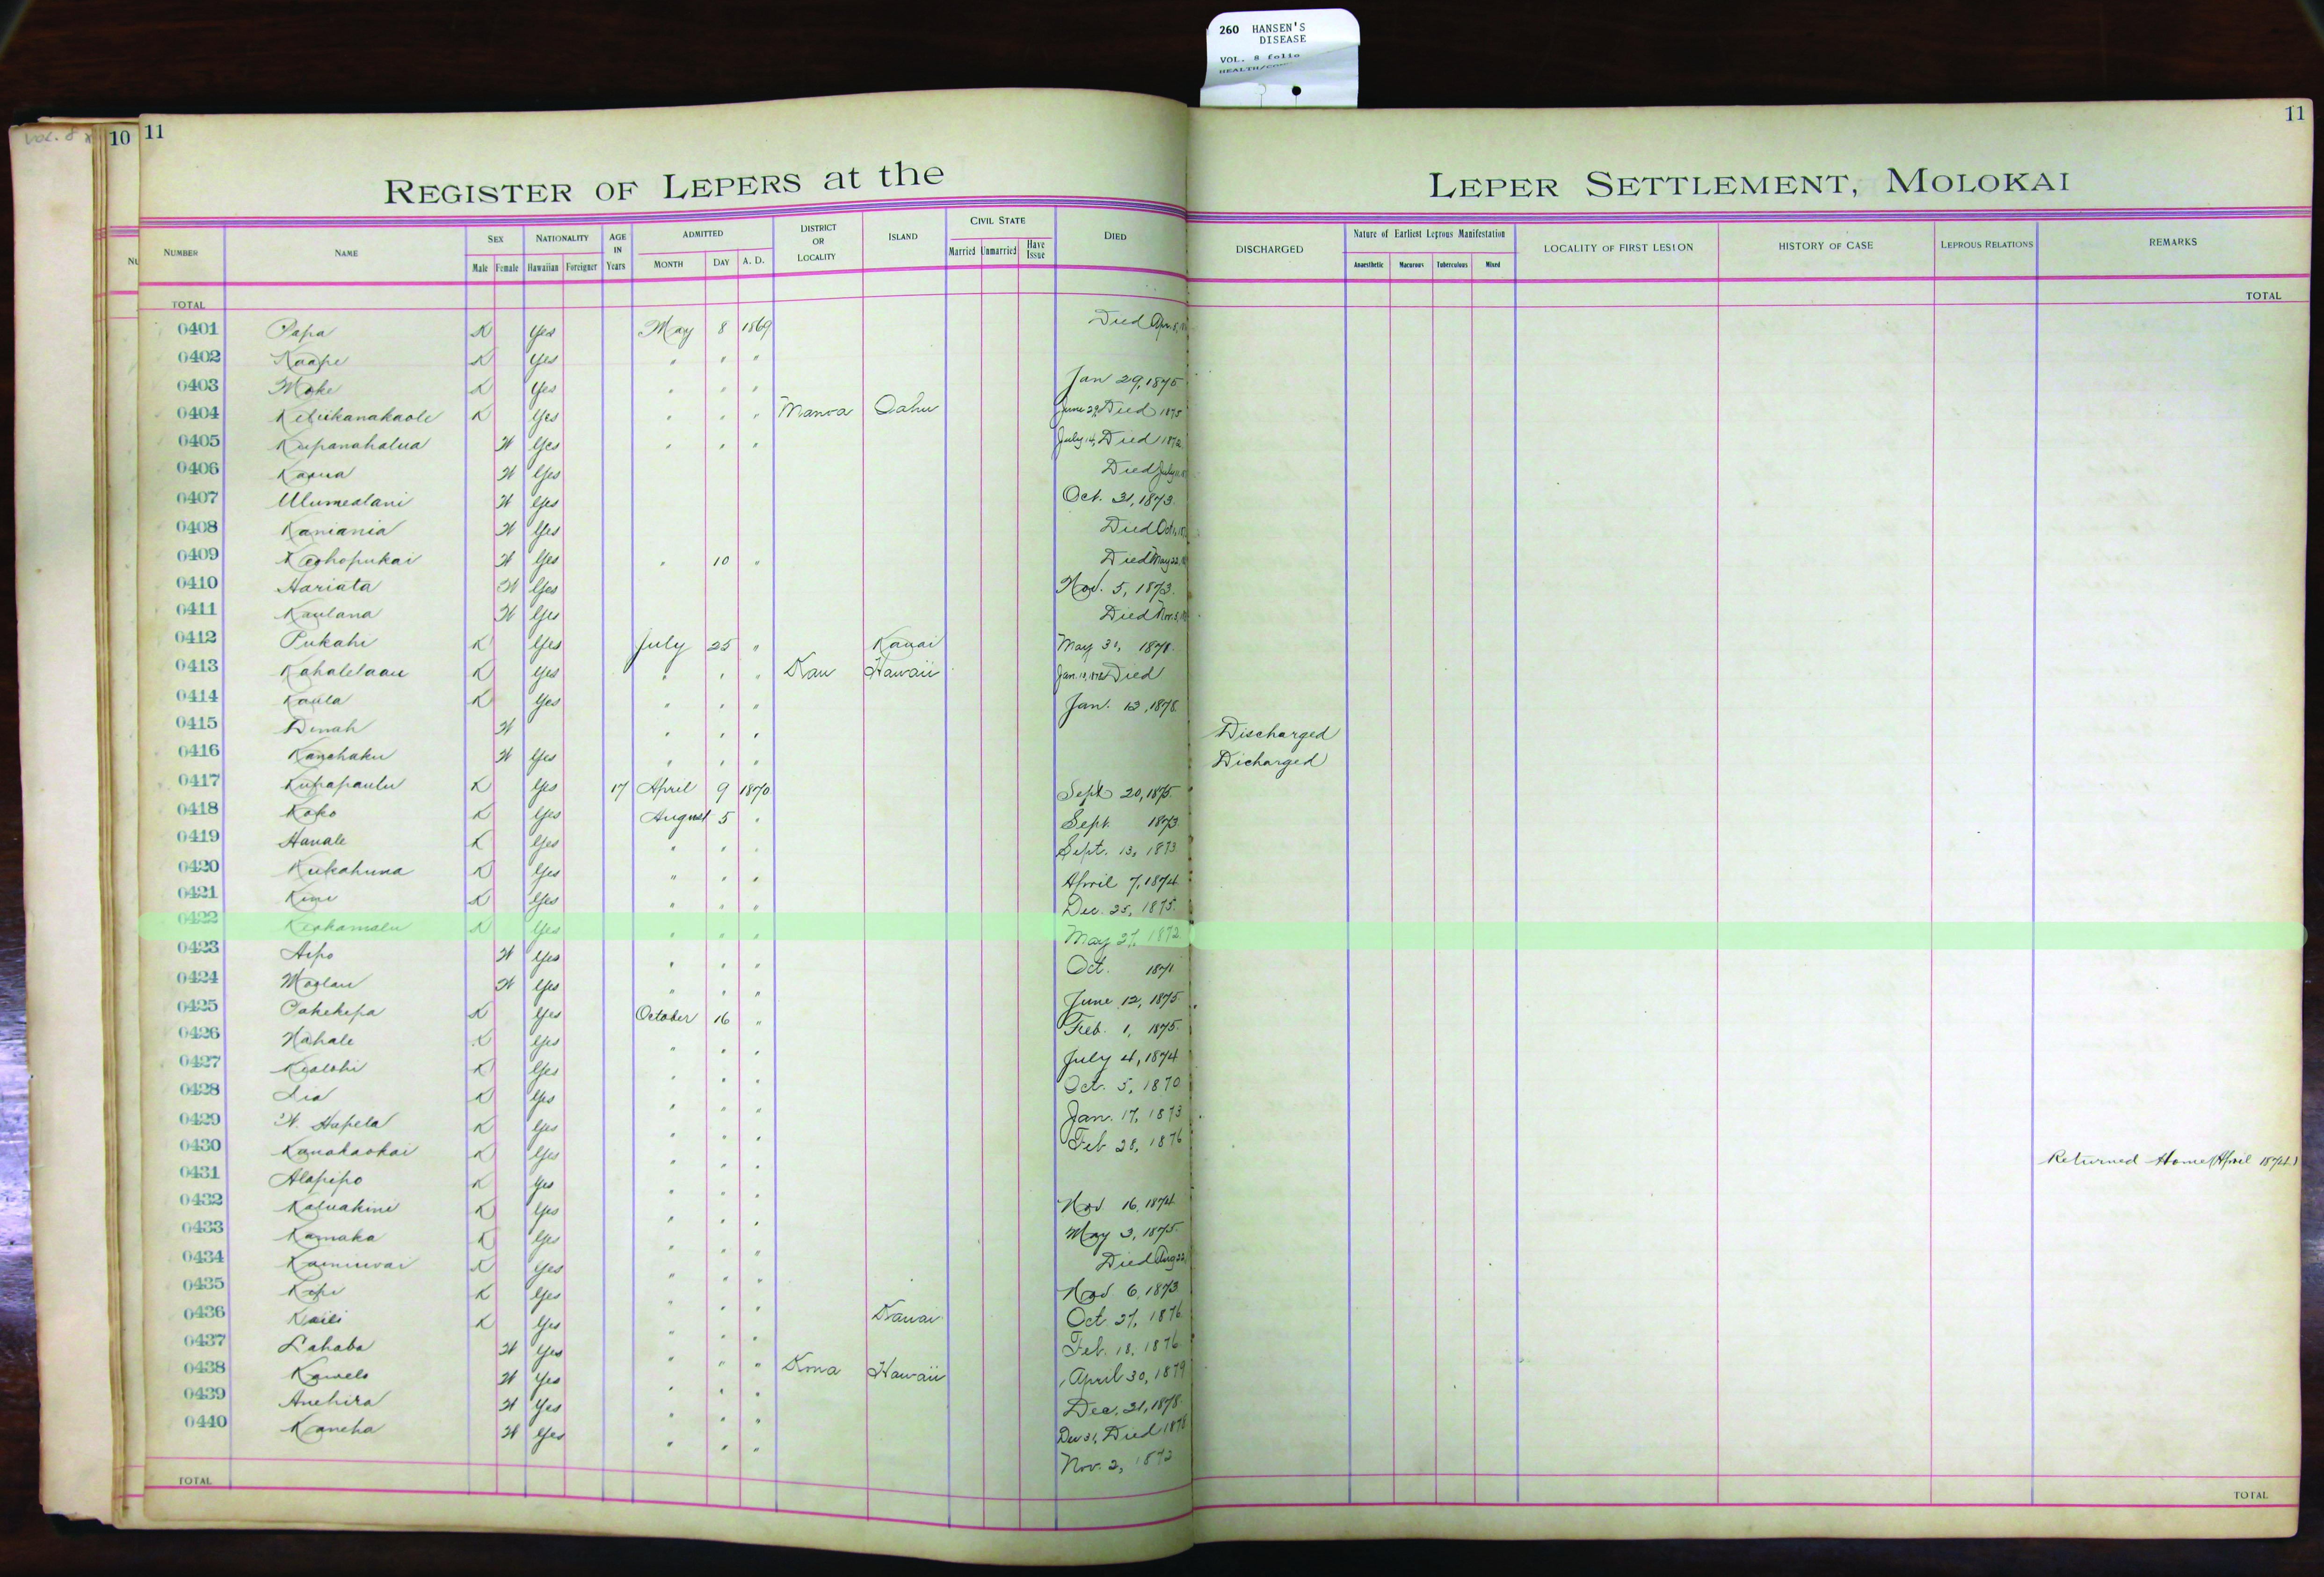 260 HANSEN'S
DISEASE
VOL. 8 folio
Vol. 8
10 11
11
REGISTER OF LEPERS at the LEPER SETTLEMENT, MOLOKAI
NUMBER NAME SEX NATIONALITY AGE IN Years ADMITTED DISTRICT OR LOCALITY ISLAND CIVIL STATE DIED DISCHARGED Nature of Earliest Leprous Manifestation LOCALITY OF FIRST LESION HISTORY OF CASE LEPROUS RELATIONS REMARKS
Male Female Hawaiian Foreigner MONTH DAY A. D. Married Unmarried Have Issue Anaesthetic Macurous Tuberculous Mixed
TOTAL TOTAL
0401 Papa K Yes May 8 1869 Died Apr. 8,
0402 Kaape K Yes " " "
0403 Moke K Yes " " " Jan 29, 1875
0404 Keliikanakaole K Yes " " " Manoa Oahu June 29, Died 1875
0405 Kupanahalua W Yes " " " July 14, Died 1872
0406 Kaoua W Yes Died July
0407 Ulumealani W Yes Oct. 31, 1873
0408 Kaniania W Yes Died Oct
0409 Keohopukai W Yes " 10 " Died May 22,
0410 Hariata W Yes Nov. 5, 1873
0411 Kaulana W Yes Died Nov. 3,
0412 Pukahi K Yes July 25 " Kauai May 31, 1878
0413 Kahalelaau K Yes " " " Kau Hawaii Jan. Died
0414 Kaula K Yes " " " Jan. 13, 1878
0415 Dinah W " " " Discharged
0416 Kanehaku W Yes " " " Dicharged
0417 Kupapaulu K Yes 17 April 9 1870 Sept 20, 1875
0418 Koko K Yes August 5 " Sept. 1873
0419 Hanale K Yes " " " Sept. 13, 1873
0420 Kukahuna K Yes " " " April 7, 1874
0421 Kini K Yes " " " Dec. 25, 1875
0422 Keohamalu K Yes " " " May 27, 1872
0423 Aipo W Yes " " " Oct. 1871
0424 Moolau W Yes " " " June 12, 1875
0425 Pakekepa K Yes October 16 " Feb. 1, 1875
0426 Nahale K Yes " " " July 4, 1874
0427 Kealohi K Yes " " " Oct. 5, 1870
0428 Lia K Yes " " " Jan. 17, 1873
0429 W. Hapela K Yes " " " Feb 28, 1876
0430 Kanakaokai K Yes " " " Returned Home (April 1874)
0431 Alapipo K Yes " " " Nov 16, 1874
0432 Kaluakini K Yes " " " May 3, 1875
0433 Kamaka K Yes " " " Died Aug 22,
0434 Kaminwai K Yes " " " Nov 6, 1873
0435 Kepi K Yes " " " Kauai Oct. 27, 1876
0436 Kaili K Yes " " " Feb. 18, 1876
0437 Lahaba W Yes " " " Kona Hawaii April 30, 1879
0438 Kawelo W Yes " " " Dec. 31, 1878
0439 Anehira W Yes " " " Dec 31, Died 1878
0440 Kaneha W Yes " " " Nov. 2, 1872
TOTAL TOTAL